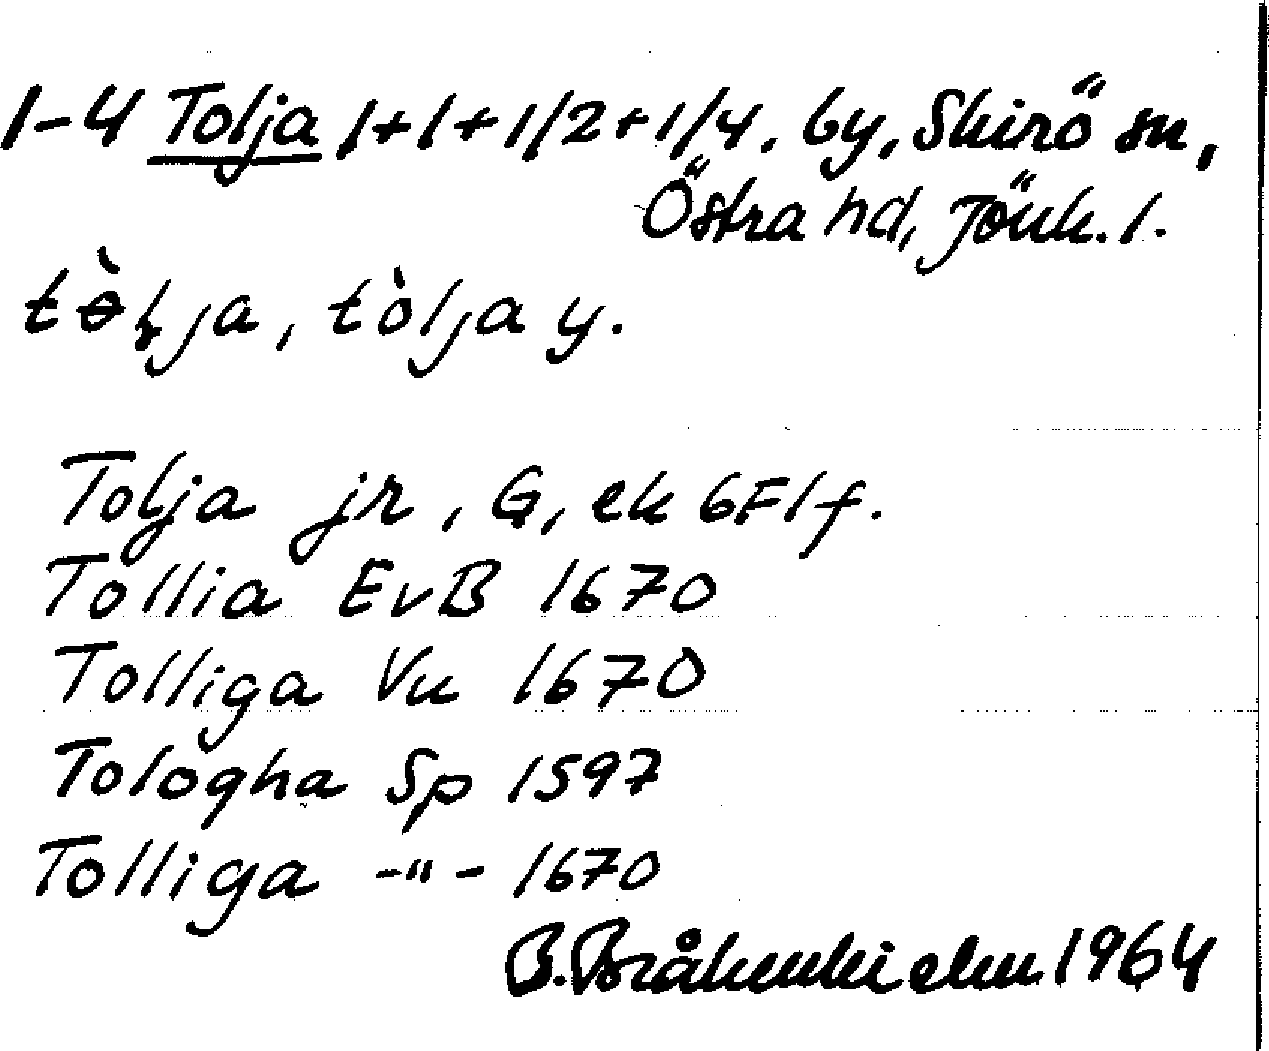 1-4 Tolja 1+1+1/2+1/4. by, Skirö sn,
Östra hd, Jönk. l.
tɵ̀ɫja, tòlja y.
Tolja jr, G, ek 6F1f.
Tollia EvB 1670
Tolliga Vu 1670
Tologha Sp 1597
Tolliga -"- 1670
B. Bråkenhielm 1964